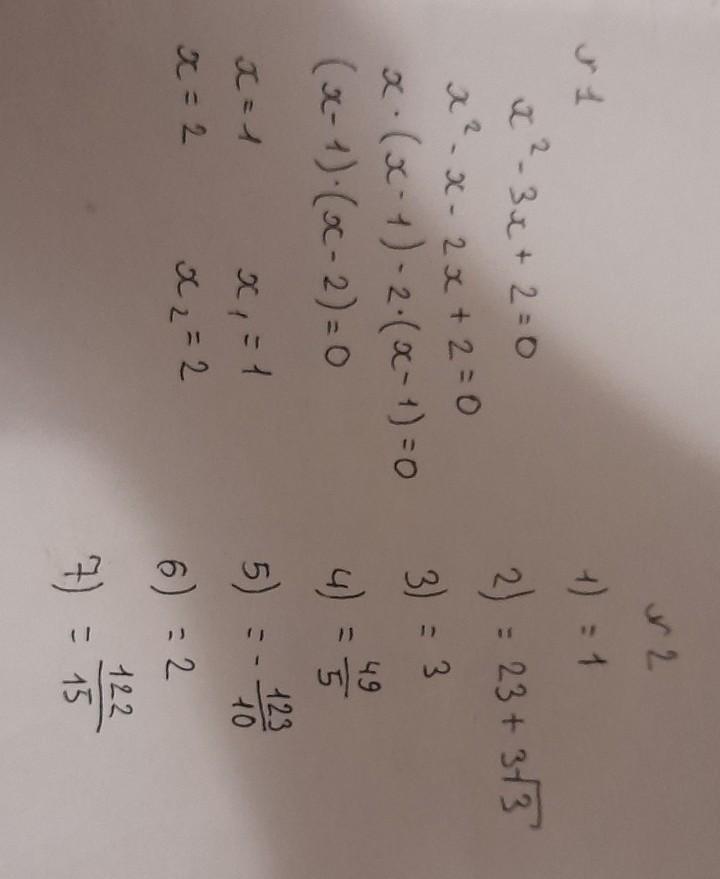 №1
x² - 3x + 2 = 0
x² - x - 2x + 2 = 0
x · (x - 1) - 2 · (x - 1) = 0
(x - 1) · (x - 2) = 0
x = 1 x₁ = 1
x = 2 x₂ = 2
№2
1) = 1
2) = 23 + 3√3
3) = 3
4) = 49/5
5) = - 123/10
6) = 2
7) = 122/15